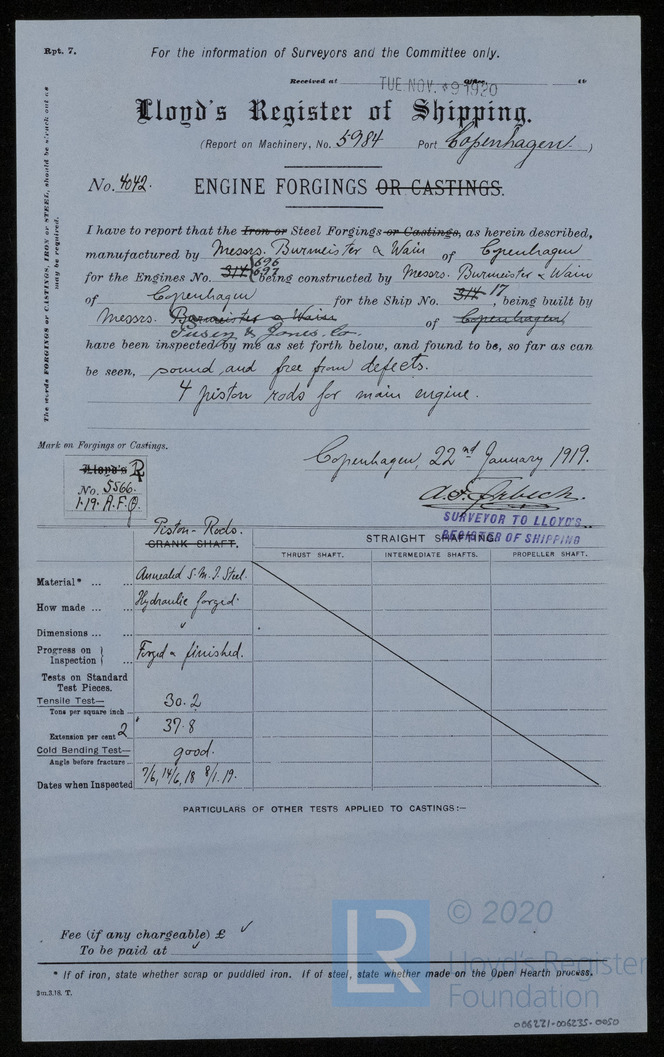 Rpt. 7.
For the information of Surveyors and the Committee only.
Received at TUE. NOV. 9 1920 Office, 19
Lloyd's Register of Shipping.
(Report on Machinery, No. 5984 Port Copenhagen.)
No. 4042. ENGINE FORGINGS OR CASTINGS.
The words FORGINGS or CASTINGS, IRON or STEEL, should be struck out as
may be required.
I have to report that the Iron or Steel Forgings or Castings, as herein described,
manufactured by Messrs. Burmeister & Wain of Copenhagen
696
for the Engines No. 314 697 being constructed by Messrs. Burmeister & Wain
of Copenhagen for the Ship No. 314 17, being built by
Messrs. Burmeister & Wain of Copenhagen,
Pusey & Jones. Co.
have been inspected by me as set forth below, and found to be, so far as can
be seen, sound and free from defects.
4 piston rods for main engine.
Mark on Forgings or Castings.
Lloyd's
No. 5566.
1.19. A.F.O.
Copenhagen, 22nd January 1919.
SURVEYOR TO LLOYD'S
REGISTER OF SHIPPING
Piston-Rods.
CRANK SHAFT. STRAIGHT SHAFTING
THRUST SHAFT. INTERMEDIATE SHAFTS. PROPELLER SHAFT.
Material* ... ... Annealed S.M.I. Steel.
How made ... ... Hydraulic forged.
Dimensions ... ... "
Progress on Inspection } ... Forged & finished.
Tests on Standard
Test Pieces.
Tensile Test— 30.2
Tons per square inch ...
Extension per cent 2" 37.8
Cold Bending Test— good.
Angle before fracture ...
Dates when Inspected 7/6, 14/6, 18 8/1.19.
PARTICULARS OF OTHER TESTS APPLIED TO CASTINGS:—
Fee (if any chargeable) £ ✓
To be paid at ✓
* If of iron, state whether scrap or puddled iron. If of steel, state whether made on the Open Hearth process.
3m.3.18. T.
LR
© 2020
Lloyd's Register
Foundation
006221-006235-0050